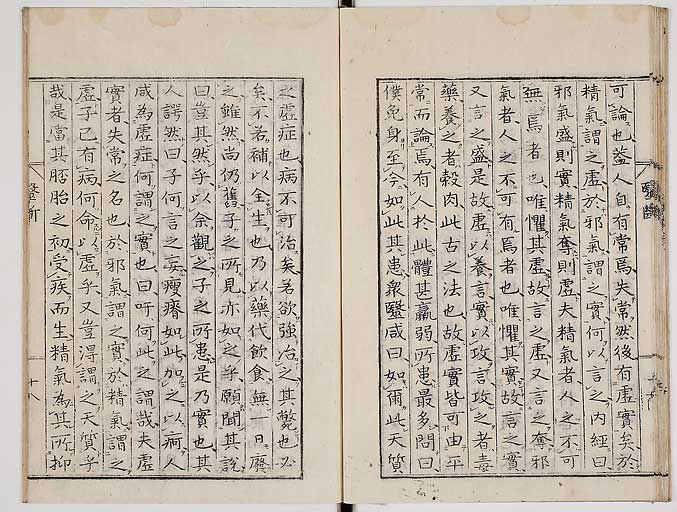 可論也蓋人自有常焉失常然後有虛實矣於
精氣謂之虛於邪氣謂之實何以言之内經曰
邪氣盛則實精氣奪則虛夫精氣者人之不可
無焉者也唯懼其虛故言之虛又言之奪邪
氣者人之不可有焉者也唯懼其實故言之實
又言之盛是故虛以養言實以攻言攻之者毒
藥養之者穀肉此古之法也故虛實皆可由平
常而論焉有人於此體甚羸弱所患最多問曰
僕免身至今如此其患衆毉咸曰如爾此天質
之虛症也病不可治矣若欲強治之其斃也必
矣不若補以全生也乃以藥代飲食無一日廢
之雖然尚仍舊子之所見亦如之乎願聞其說
曰豈其然乎以余觀之子之所患是乃實也其
人諤然曰子何言之妄瘦瘠如此加之以痾人
咸為虛症何謂之實也曰吁何此之謂哉夫虛
實者失常之名也於邪氣謂之實於精氣謂之
虛子已有病何命以虛乎又豈得謂之天質乎
哉是當其胚胎之初受疾而生精氣為其所抑
毉斷
十八